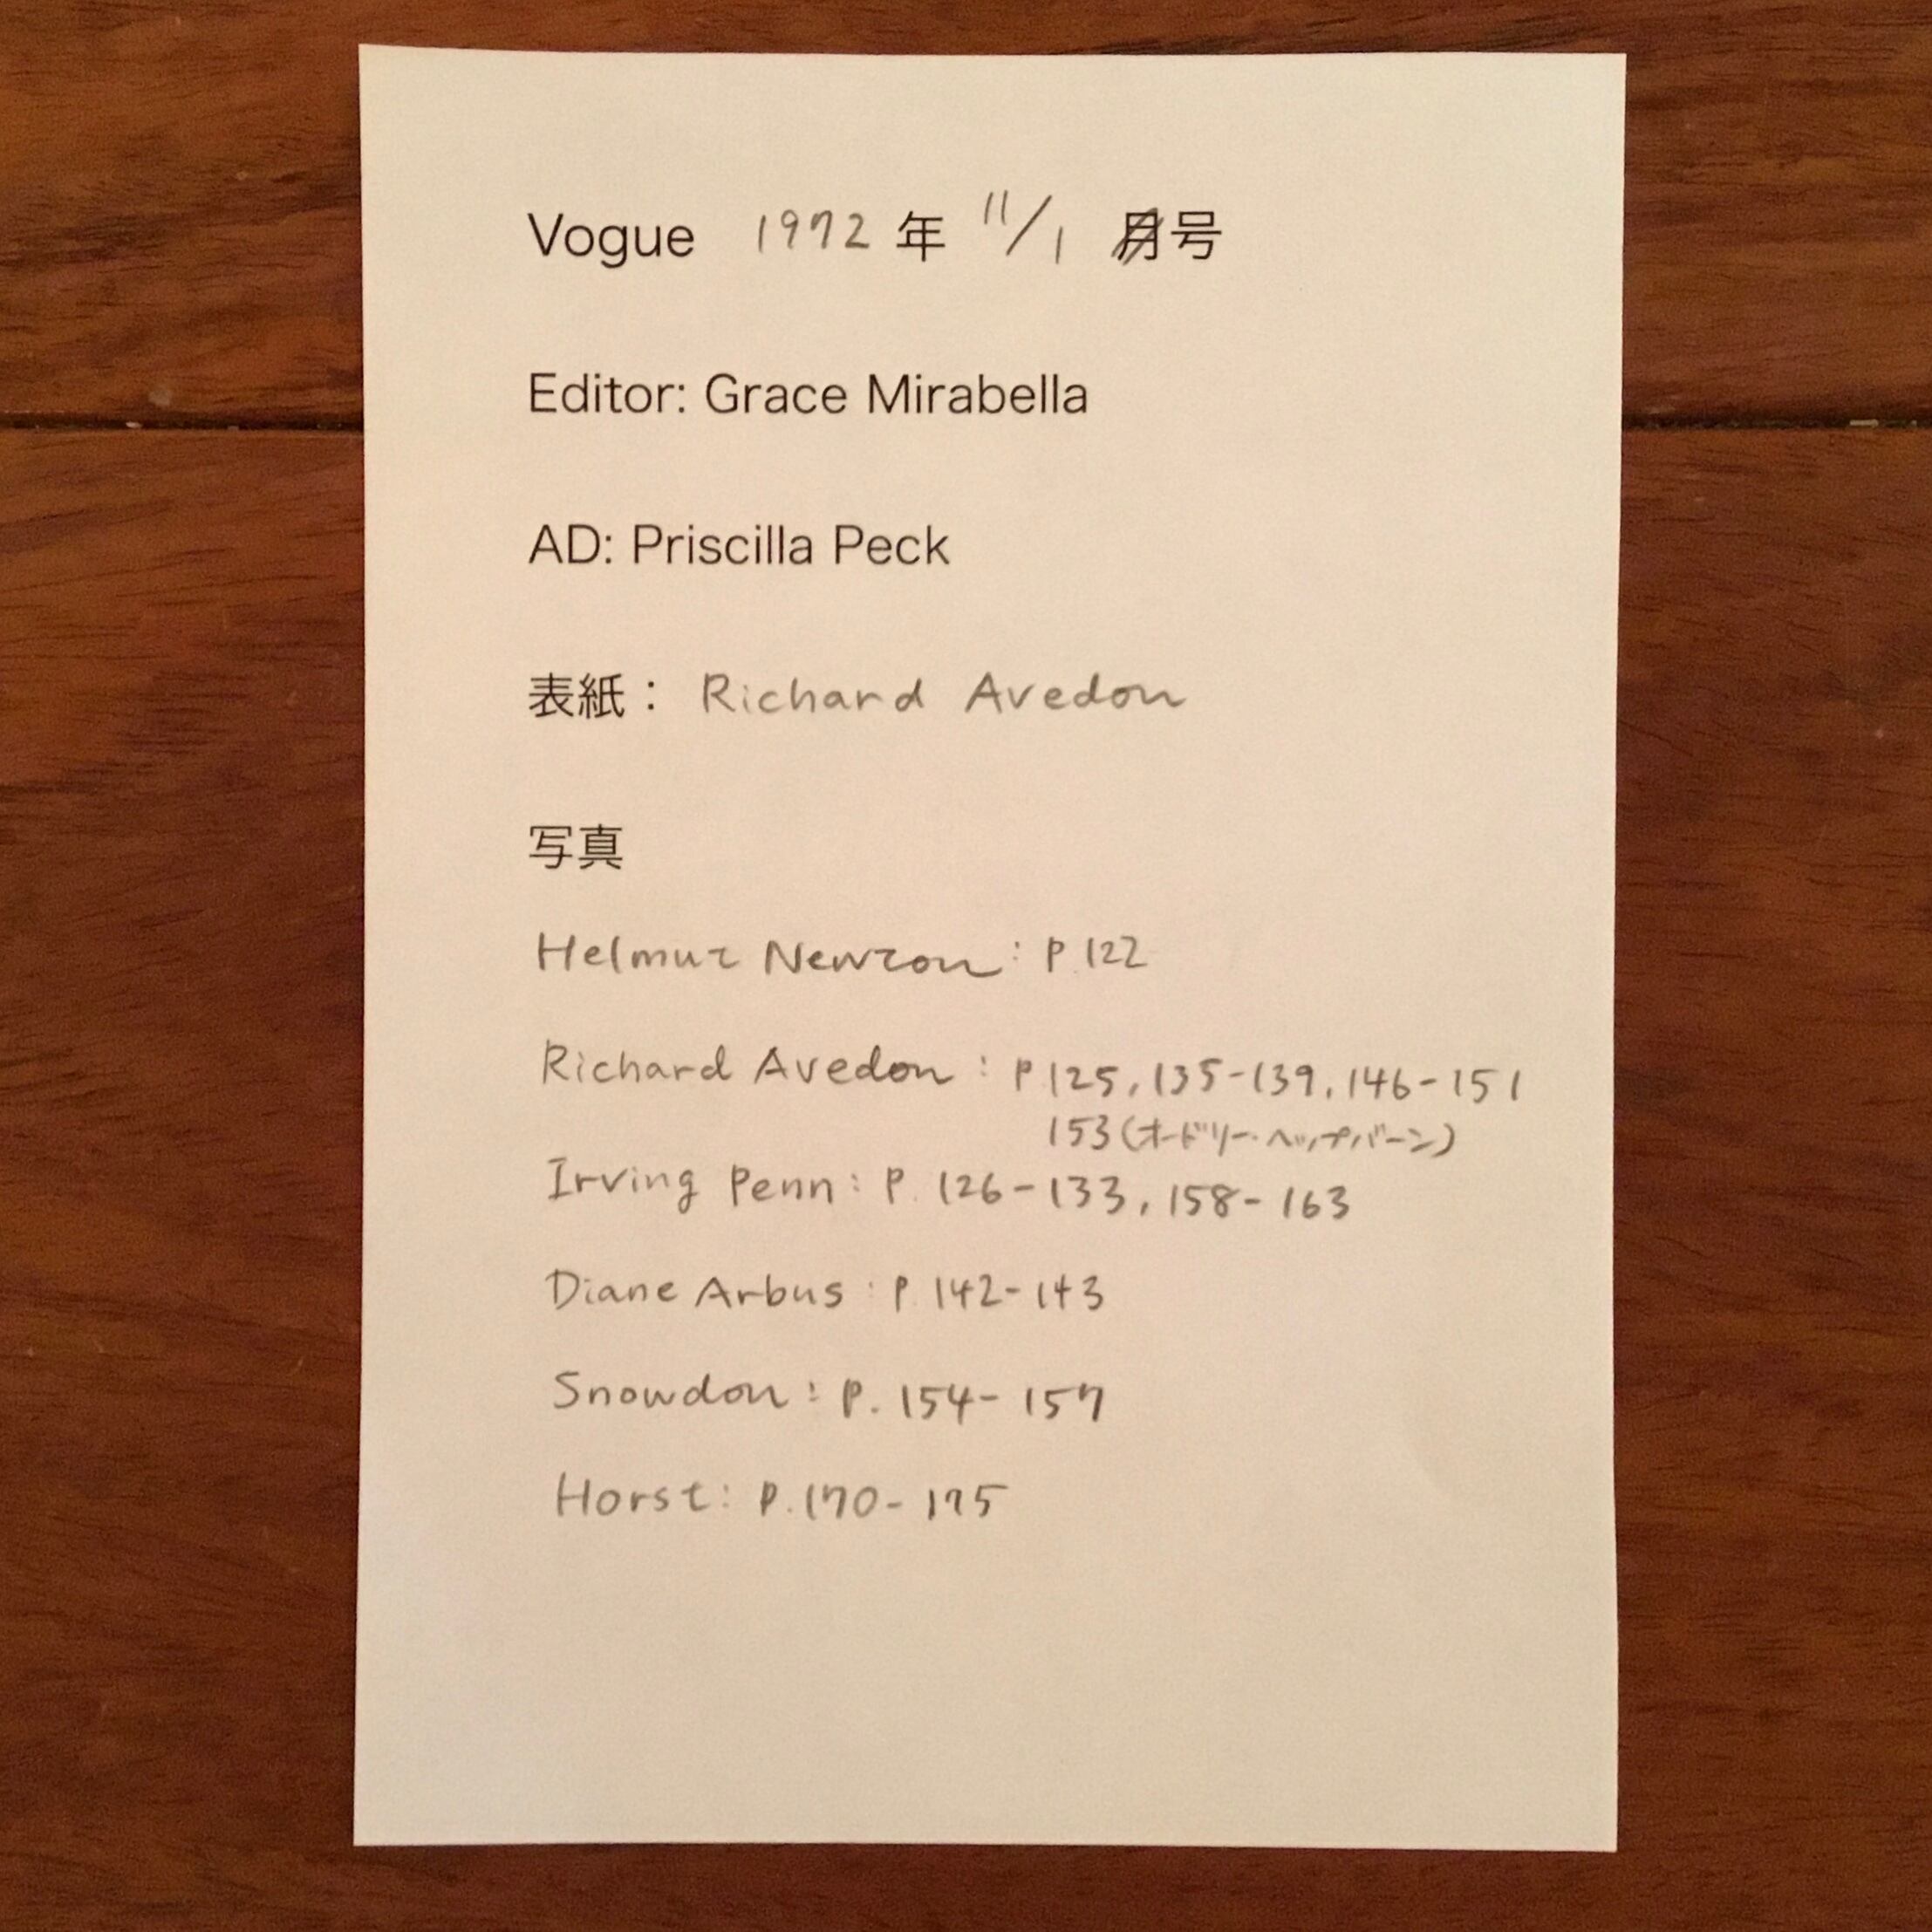 Vogue 1972 年 11/1 号
Editor: Grace Mirabella
AD: Priscilla Peck
表紙： Richard Avedon
写真
Helmut Newton : P.122
Richard Avedon : P.125, 135-139, 146-151
153 (オードリー・ヘップバーン)
Irving Penn : P. 126-133, 158-163
Diane Arbus : P. 142-143
Snowdon : P. 154-157
Horst : P.170-175